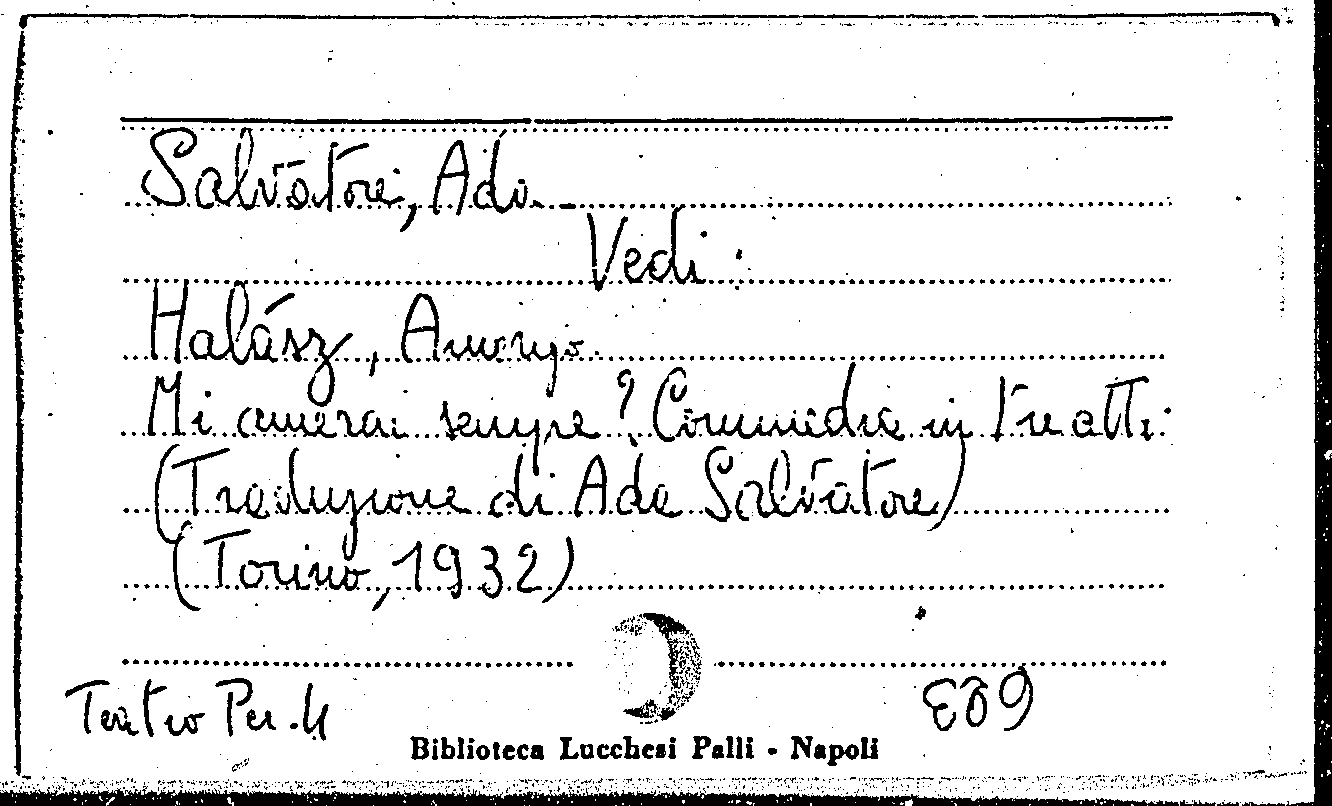 Salvatore, Ada.
Vedi:
Halász, Amerigo.
Mi amerai sempre? Commedia in tre atti.
(Traduzione di Ada Salvatore)
(Torino, 1932)
Teatro Per. 4
Biblioteca Lucchesi Palli - Napoli